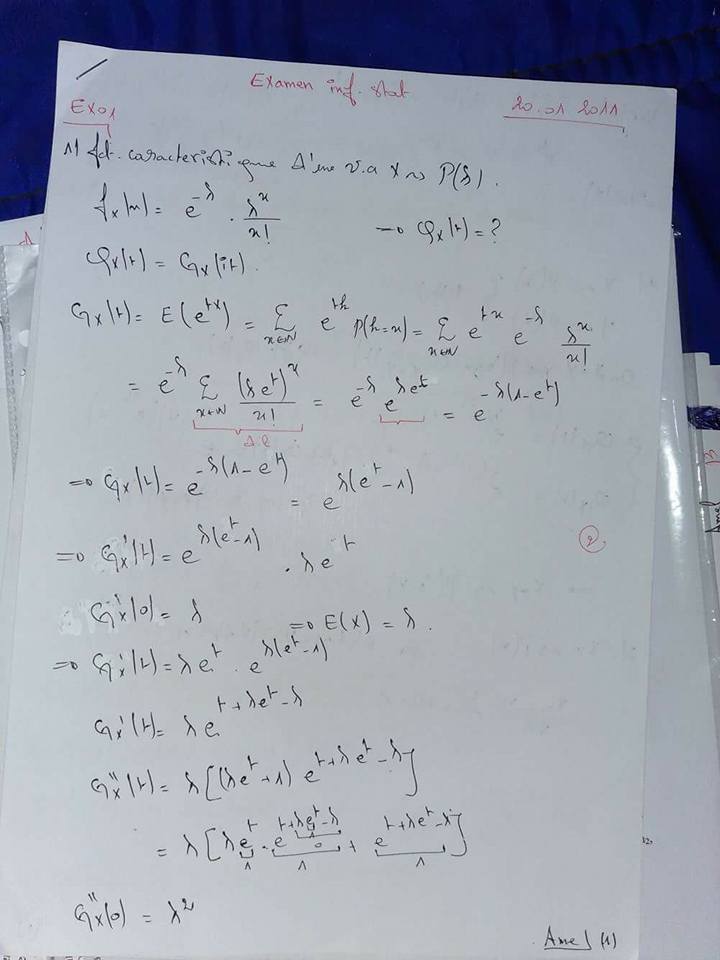 Examen inf. stat 20.01 2011
Exo1
1) fct. caracteristique d'une v.a X ~> P(λ).
f_X(x) = e^{-λ} . λ^x / x! → φ_X(t) = ?
φ_X(t) = G_X(it).
G_X(t) = E(e^{tx}) = Σ_{x∈N} e^{th} P(h=x) = Σ_{x∈N} e^{tx} e^{-λ} λ^x / x!
= e^{-λ} Σ_{x∈N} (λe^t)^x / x! = e^{-λ} e^{λe^t} = e^{-λ(1-e^t)}
⇒ G_X(t) = e^{-λ(1-e^t)} = e^{λ(e^t-1)}
⇒ G'_X(t) = e^{λ(e^t-1)} . λe^t
2
G'_X(0) = λ ⇒ E(X) = λ.
⇒ G'_X(t) = λe^t . e^{λ(e^t-1)}
G'_X(t) = λ e^{t+λe^t-λ}
G''_X(t) = λ[(λe^t+1) e^{t+λe^t-λ}]
= λ[λe^t . e^{t+λe^t-λ} + e^{t+λe^t-λ}]
1 1 1
G''_X(0) = λ^2
Amel (1)